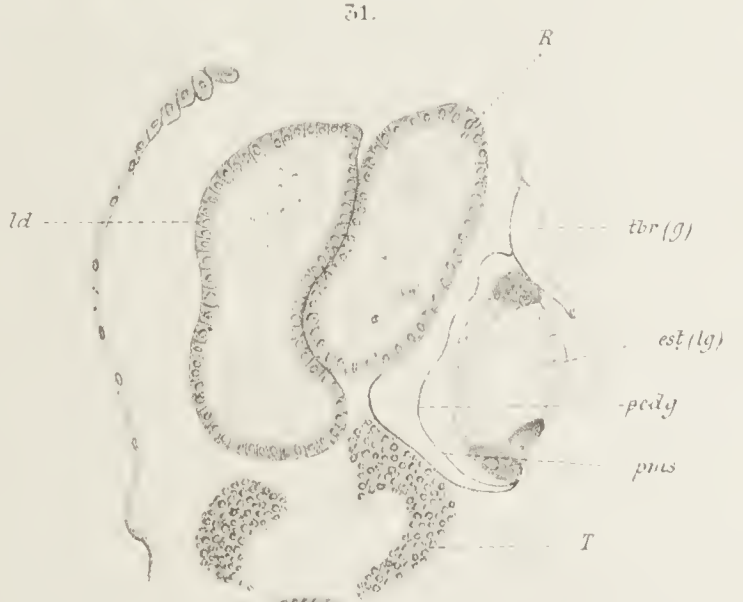 31.
R
ld
tbr (g)
est (lg)
pcdg
pms
T